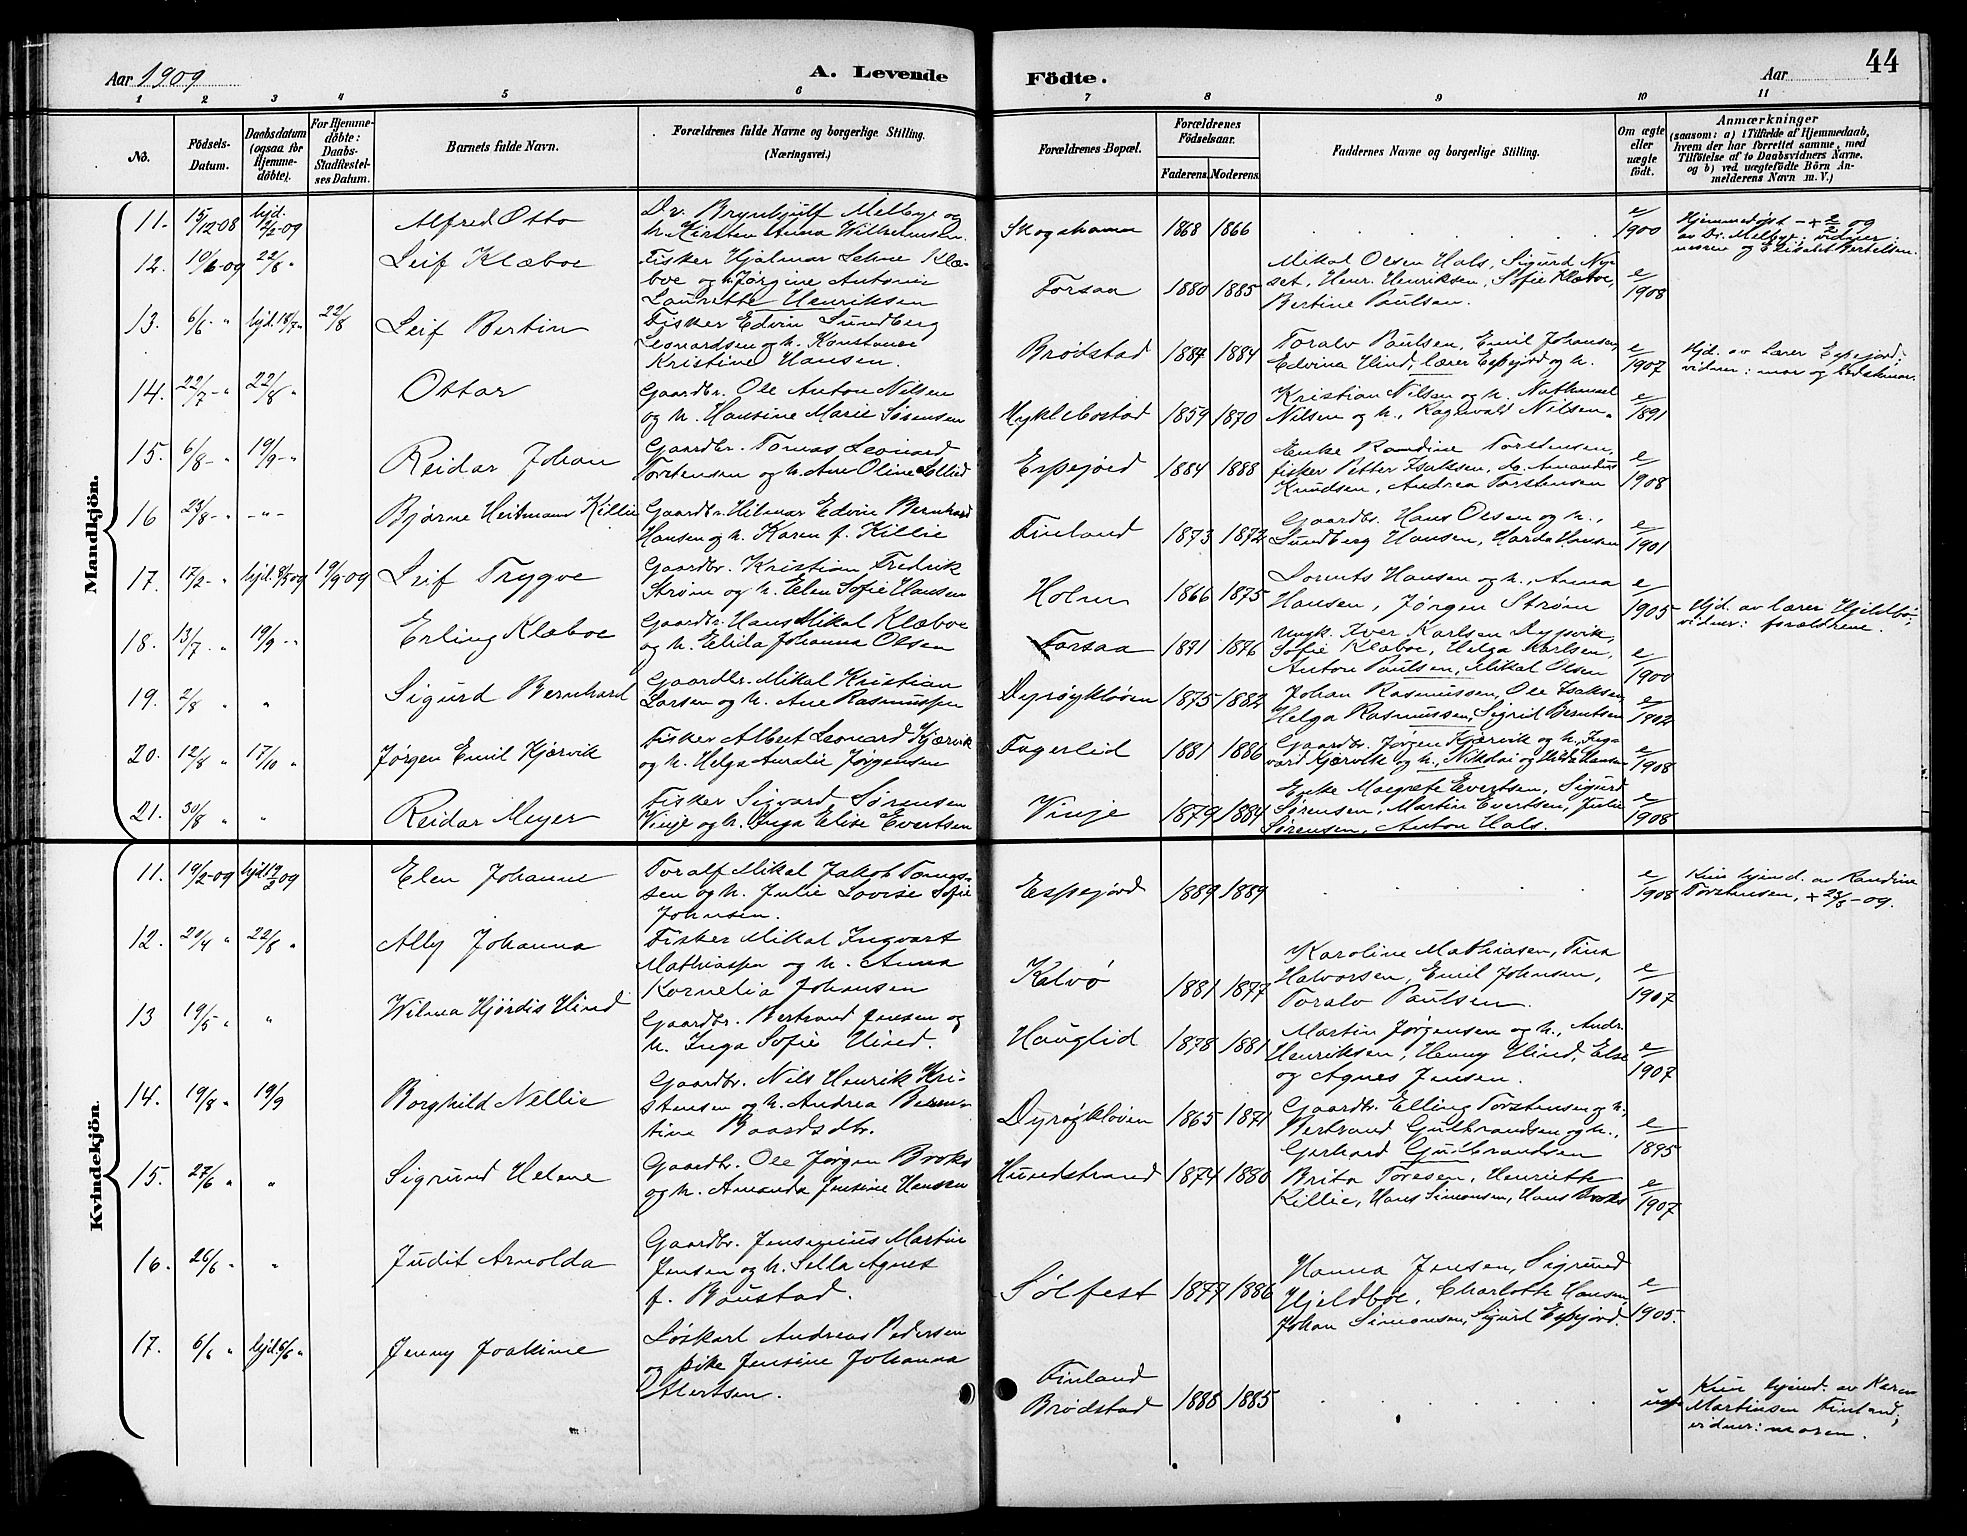 Aar 1909
A. Levende
Fødte.
Aar
44
1 2 3 4 5 6 7 8 9 10 11
No.
Fødsels-
Datum.
Daabsdatum
(ogsaa for
Hjemme-
døbte).
For Hjemme-
døbte:
Daabs-
Stadfæstel-
ses Datum.
Barnets fulde Navn.
Forældrenes fulde Navne og borgerlige Stilling.
(Næringsvei.)
Forældrenes Bopæl.
Forældrenes
Fødselsaar.
Faderens. Moderens.
Faddernes Navne og borgerlige Stilling.
Om ægte
eller
uægte
født.
Anmærkninger
(saasom: a) i Tilfælde af Hjemmedaab,
hvem der har forrettet samme, med
Tilføielse af to Daabsvidners Navne.
og b) ved uægtefødte Børn An-
melderens Navn m. V.)
Mandkjön.
11. 15/12-08 hjd. 2/2-09 Alfred Otto
Dr. Brynhjulf Melbye og
h. Kirsten Anna Wilhelmsen.
Skogshamn 1868 1866
e/1900
Hjemmedøpt - + 2/2 09
av Dr. Melbye; vidner:
moren og Elisabet Bertelsen.
12. 10/6-09 22/8 " Leif Klæboe
Fisker Hjalmar Schue Klæ-
boe og h. Jørgine Antonie
Laurette Henriksen
Forsaa 1880 1885
Mikal Olsen Hals, Sigurd Ny-
set, Henr. Henriksen, Sofie Klæboe,
Bertine Paulsen.
e/1908
13. 6/6 - " hjd. 18/7 " 22/8 Leif Bertin
Fisker Edvin Sundberg
Leonardsen og h. Konstanse
Kristine Hansen.
Brødstad 1887 1884
Toralv Paulsen, Emil Johansen,
Edvina Hind, lærer Espejord og h.
e/1907
Hjd. av lærer Espejord;
vidner: mor og
14. 22/7 - " 22/8 " Ottar
Gaardbr. Ole Anton Nilsen
og h. Hansine Marie Sørensen
Myklebostad 1859 1870
Kristian Nilsen og h. Nathanael
Nilsen og h., Ragnvald Nilsen.
e/1891
15. 6/8 - " 19/9 - " Reidar Johan
Gaardbr. Tomas Leonard
Torstensen og h. Ane Oline Sollid
Espejord 1884 1888
Enke Randine Torstensen,
fisker Petter Isaksen, do. Amandus
Knudsen, Andrea Torstensen
e/1908
16 23/8 - " - " - Bjarne Heitmann Killie
Gaardbr. Hilmar Edvin Bernhard
Hansen og h. Karen f. Killie
Finland 1873 1872
Gaardbr. Hans Olsen og h.,
Sundberg Hansen, Harda Hansen
e/1901
17. 17/2 - " hjd. 8/5 09 19/9-09 Leif Trygve
Gaardbr. Kristian Fredrik
Strøm og h. Elen Sofie Hansen
Holm 1866 1875
Lorents Hansen og h., Anna
Hansen, Jørgen Strøm
e/1905
Hjd. av lærer Hjeldbo;
vidner: forældrene.
18. 13/7 " 19/9 - " Erling Klæboe
Gaardbr. Hans Mikal Klæboe
og h. Elida Johanna Olsen
Forsaa 1871 1876
Ungk. Iver Karlsen Dypvik,
Sofie Klæboe, Helga Karlsen,
Anton Paulsen, Mikal Olsen
e/1900
19. 2/8 " " Sigurd Bernhard
Gaardbr. Mikal Kristian
Larsen og h. Ane Rasmussen
Dyrøykløven 1875 1882
Johan Rasmussen, Ole Isaksen
Helga Rasmussen, Sigrid Berntsen
e/1902
20. 12/8 " 17/10 " Jørgen Emil Kjærvik
Fisker Albert Leonard Kjærvik
og h. Helga Amalie Jørgensen
Fagerlid 1881 1886
Gaardbr. Jørgen Kjærvik og h., Ing-
vard Kjærvik og h., Nikolai og Hilda Hansen
e/1908
21. 30/8 " " Reidar Meyer
Fisker Sigvard Sørensen
Vinje og h. Inga Elise Evertsen
Vinje 1879 1884
Enke Margrete Evertsen, Sigurd
Sørensen, Martin Evertsen, Julie
Sørensen, Anton Hals.
e/1908
Kvindekjön.
11. 19/2-09 hjd 19/2 09 Elen Johanne
Toralf Mikal Jakob Tomas-
sen og h. Julie Lovise Sofie
Johnsen.
Espejord 1889 1889
e/1908
Kun hjemd. av Randine
Torstensen, + 23/5-09.
12. 20/4 " 22/8 " Ally Johanna
Fisker Mikal Ingvart
Mathiassen og h. Anna
Kornelia Johansen
Kalvø 1881 1877
Karoline Mathiasen, Tina
Halvorsen, Emil Johnsen,
Toralv Paulsen.
e/1907
13 19/5 " " Wilma Hjørdis Hind
Gaardbr. Bertrand Jensen og
h. Inga Sofie Hind.
Hauglid 1878 1881
Martin Jørgensen og h., Andr.
Henriksen, Henny Hind, Else
og Agnes Jensen.
e/1907
14. 19/8 " 19/9 Borghild Nellie
Gaardbr. Nils Henrik Kri-
stensen og h. Andrea Bern-
tine Baardsdtr.
Dyrøykløven 1865 1871
Gaardbr. Elling Torstensen og h.,
Bertrand Gulbrandsen og h.,
Gerhard Gulbrandsen
e/1895
15. 27/6 " " Sigrund Helene
Gaardbr. Ole Jørgen Broks
og h. Amanda Jensine Hansen
Hundstrand 1874 1880
Brita Toresen, Henriette
Killie, Hans Simonsen, Hans Broks
e/1907
16. 26/6 " " Judit Arnolda
Gaardbr. Jensenius Martin
Jensen og h. Sella Agnes
f. Baustad.
Sølfest 1877 1886
Hanna Jensen, Sigrund
Hjeldboe, Charlotte Hansen,
Johan Simonsen, Sigurd Espejord.
e/1905.
17. 6/6 " hjd. 6/6 " Jenny Joakime
Løskarl Andreas Pedersen
og pike Jensine Johanna
Albertsen.
Finland
Brødstad 1888 1885
uef
Kun hjemd. av Karen
Martinsen Finland;
vidner: moren.